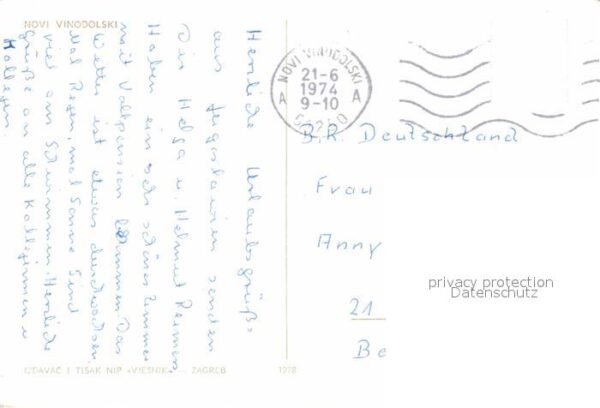 NOVI VINODOLSKI
Herzliche Urlaubsgrüße
aus Jugoslawien senden
Dir Helga u. Helmut Reimers
Haben ein sehr schönes Zimmer
mit Vollpension bekommen. Das
Wetter ist etwas durchwachsen.
Mal Regen, mal Sonne. Sind
viel am Schwimmen. Herzliche
Grüße an alle Kolleginnen u
Kollegen.
NOVI VINODOLSKI
21-6
1974
9-10
A A
B.R. Deutschland
Frau
Anny
21
Be
privacy protection
Datenschutz
IZDAVAČ I TISAK NIP «VJESNIK» — ZAGREB